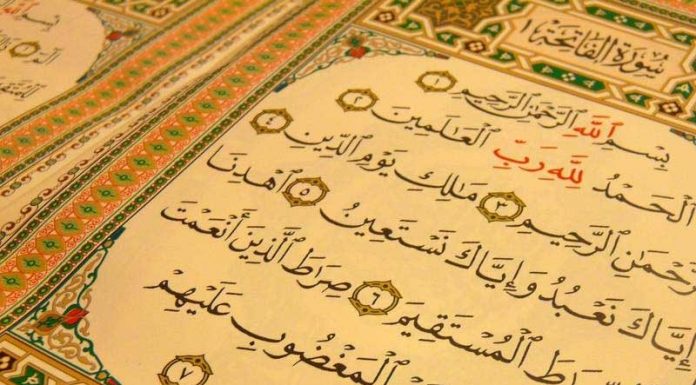 سُورَةُ الفَاتِحَةِ ١
بِسْمِ ٱللَّهِ ٱلرَّحْمَٰنِ ٱلرَّحِيمِ ١
ٱلْحَمْدُ لِلَّهِ رَبِّ ٱلْعَٰلَمِينَ ٢
رَّحْمَٰنِ ٱلرَّحِيمِ ٣ مَٰلِكِ يَوْمِ ٱلدِّينِ ٤
إِيَّاكَ نَعْبُدُ وَإِيَّاكَ نَسْتَعِينُ ٥ ٱهْدِنَا
رَٰطَ ٱلْمُسْتَقِيمَ ٦ صِرَٰطَ ٱلَّذِينَ أَنْعَمْتَ
ٱلْمَغْضُوبِ عَلَيْهِمْ
٧